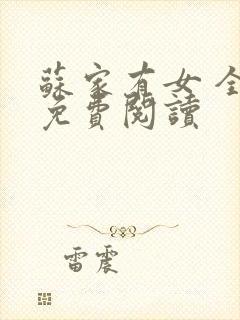 蘇家有女 全
免費閱讀
雷震